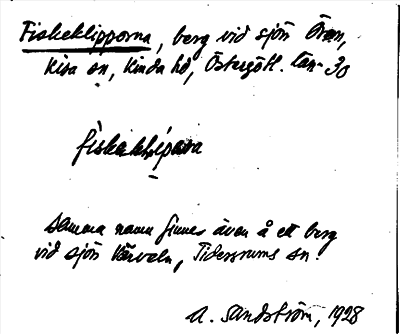 Fiskeklipporna, berg vid sjön Ören,
Kisa sn, Kinda hd, Östergötl. län 30
samma namn finnes även å ett berg
vid sjön Verveln, Tidersrums sn.
A. Sandström, 1928